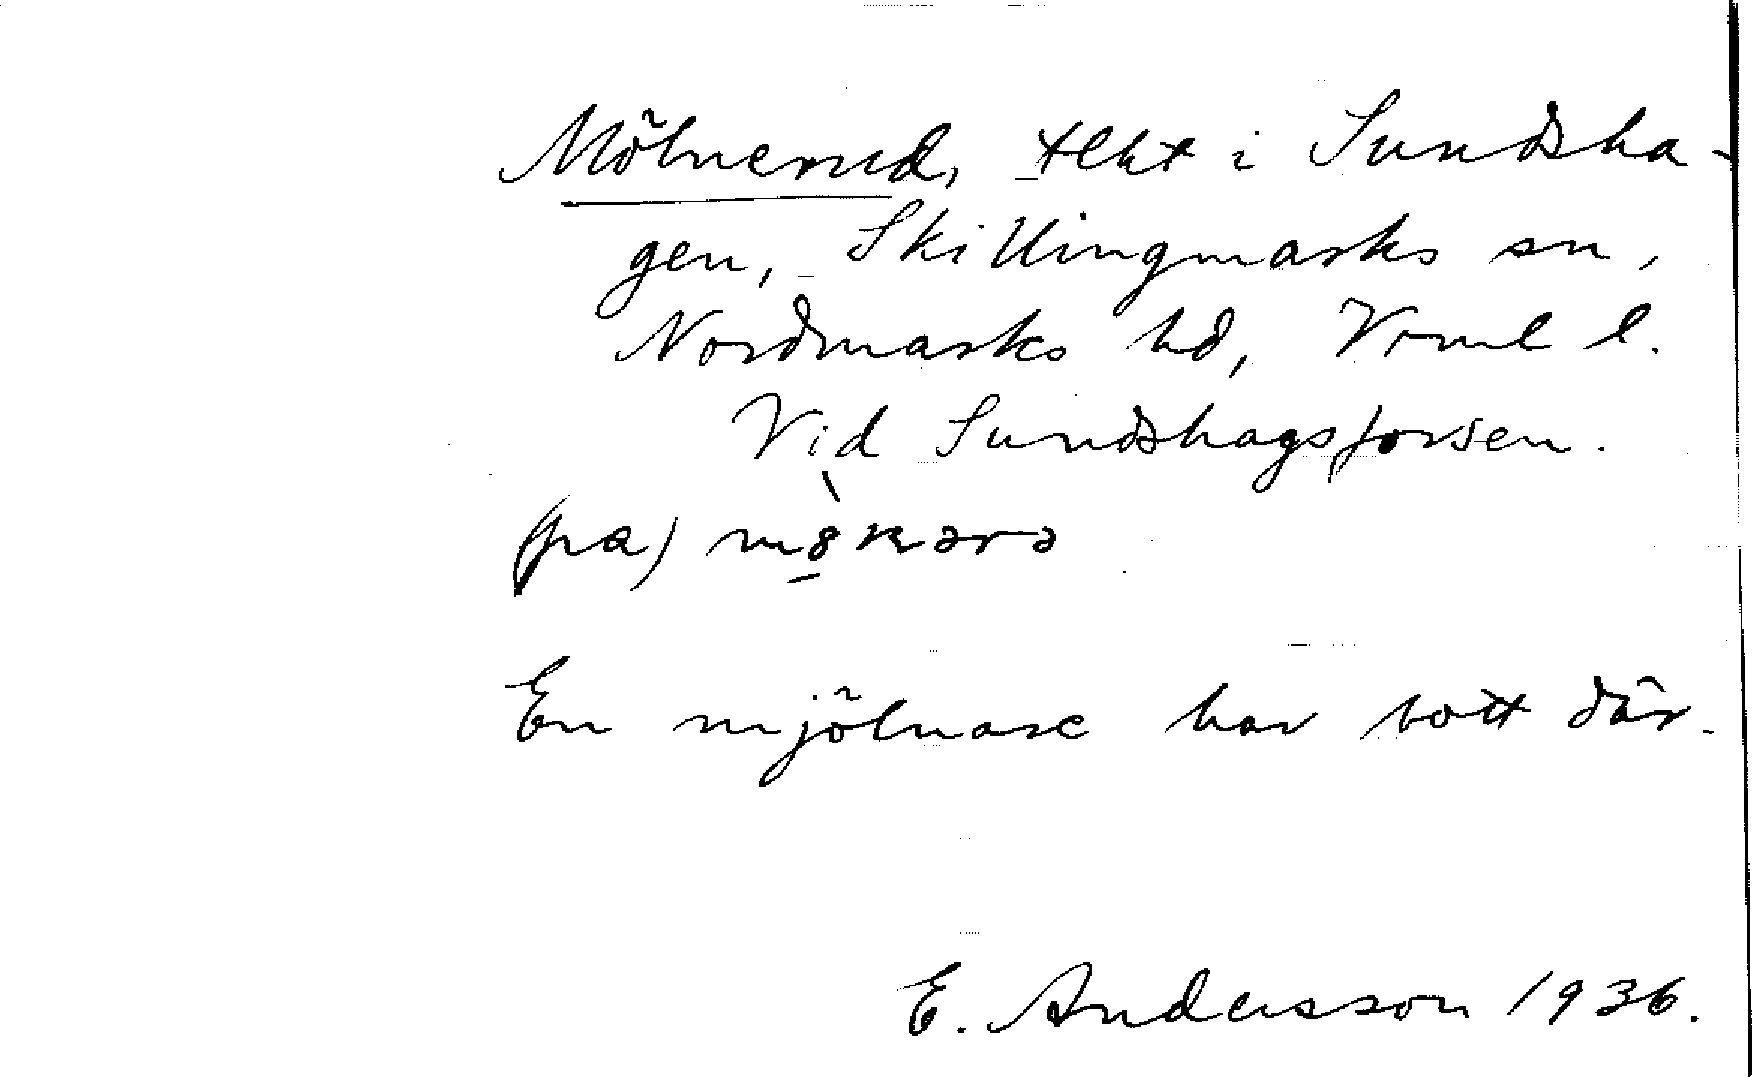 Mölnerud, tlht i Sundsha-
gen, Skillingmarks sn,
Nordmarks hd, Vrml l.
Vid Sundshagsforsen.
(pa)
En mjölnare har bott där.
E. Andersson 1936.